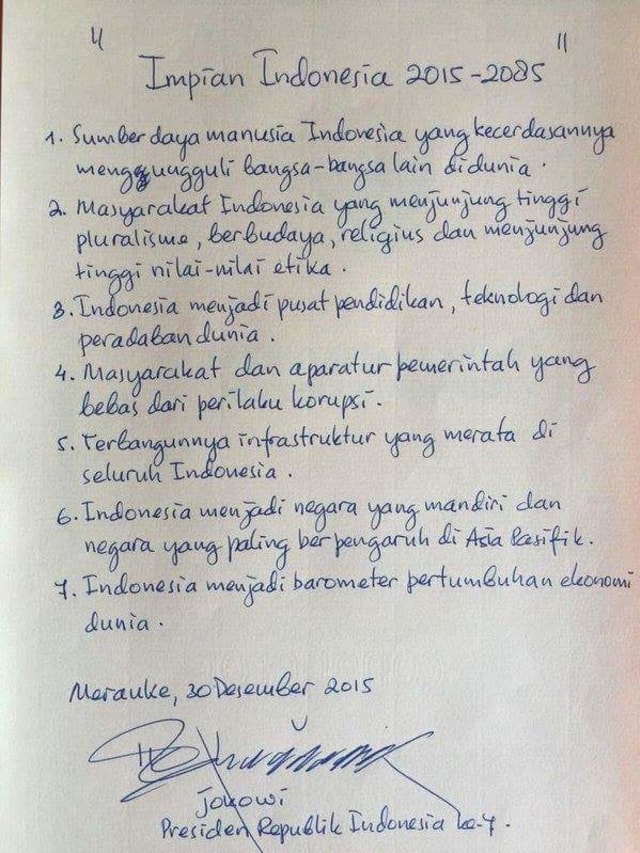 " "
Impian Indonesia 2015-2085
1. Sumber daya manusia Indonesia yang kecerdasannya
mengungguli bangsa-bangsa lain didunia.
2. Masyarakat Indonesia yang menjunjung tinggi
pluralisme, berbudaya, religius dan menjunjung
tinggi nilai-nilai etika.
3. Indonesia menjadi pusat pendidikan, teknologi dan
peradaban dunia.
4. Masyarakat dan aparatur pemerintah yang
bebas dari perilaku korupsi.
5. Terbangunnya infrastruktur yang merata di
seluruh Indonesia.
6. Indonesia menjadi negara yang mandiri dan
negara yang paling berpengaruh di Asia Pasifik.
7. Indonesia menjadi barometer pertumbuhan ekonomi
dunia.
Merauke, 30 Desember 2015
jokowi
Presiden Republik Indonesia ke-7.